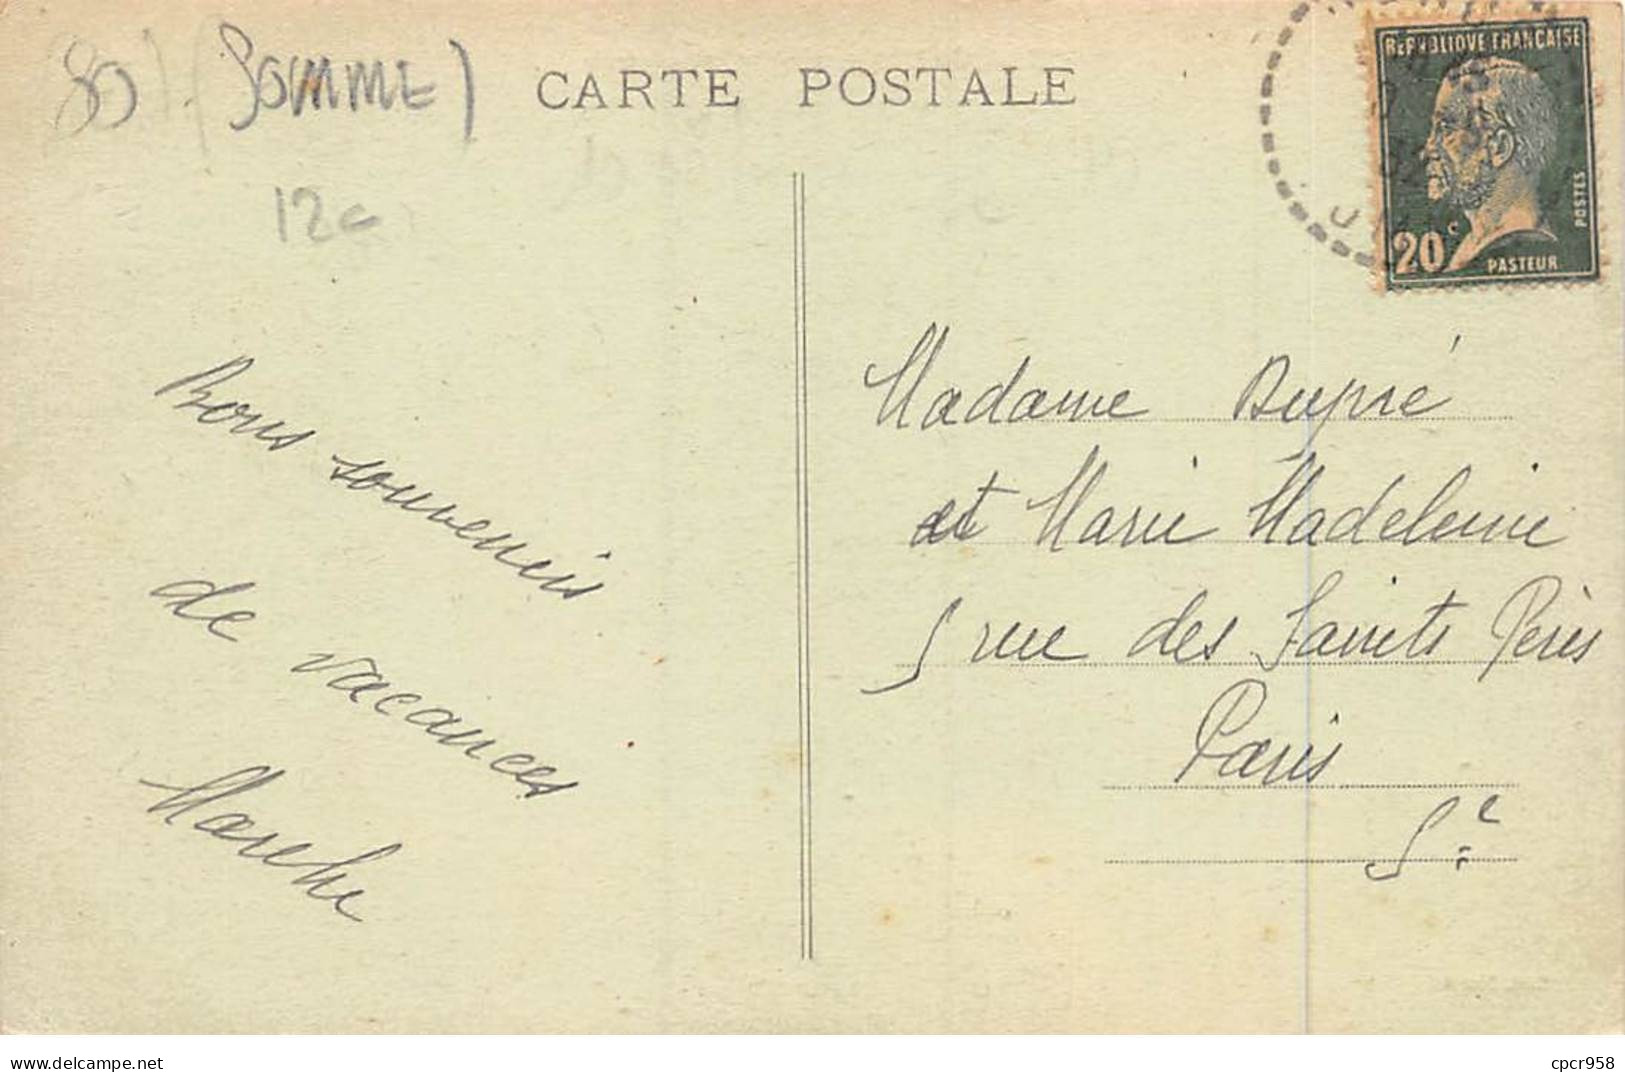 80 (SOMME)
CARTE POSTALE
12€
REPUBLIQUE FRANCAISE
POSTES
20c
PASTEUR
Bons souvenirs
de vacances
Madame Dupré
et Marie Madeleine
5 rue des Saints Pères
Paris
5e
delcampe.net
cpcr958